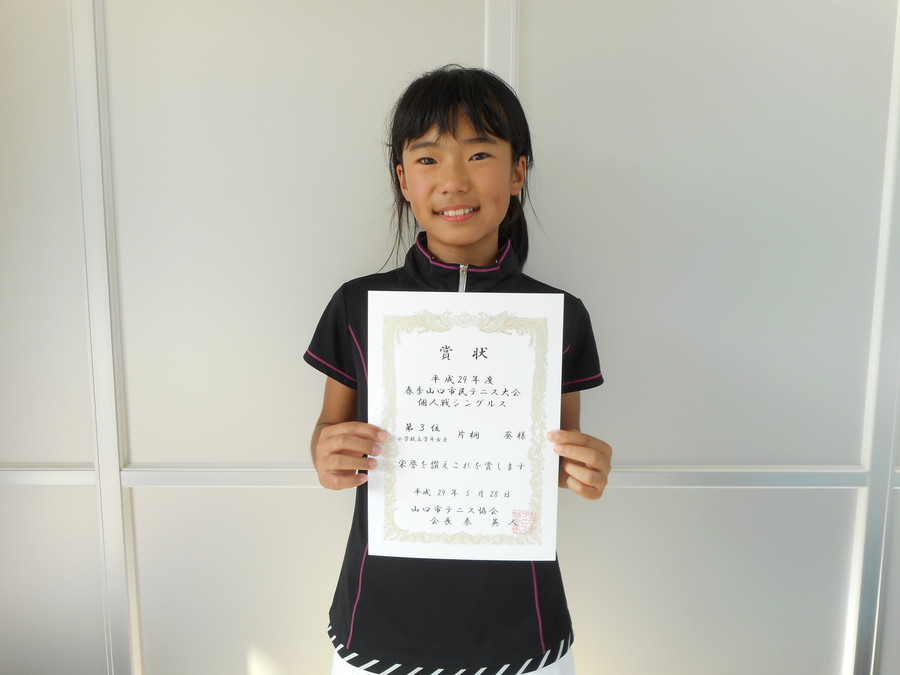 賞状
平成29年度
春季山口市民テニス大会
個人戦シングルス
第3位
小学校高学年女子 片桐 葵様
栄誉を讃えこれを賞します
平成29年5月28日
山口市テニス協会
会長 秦 英人